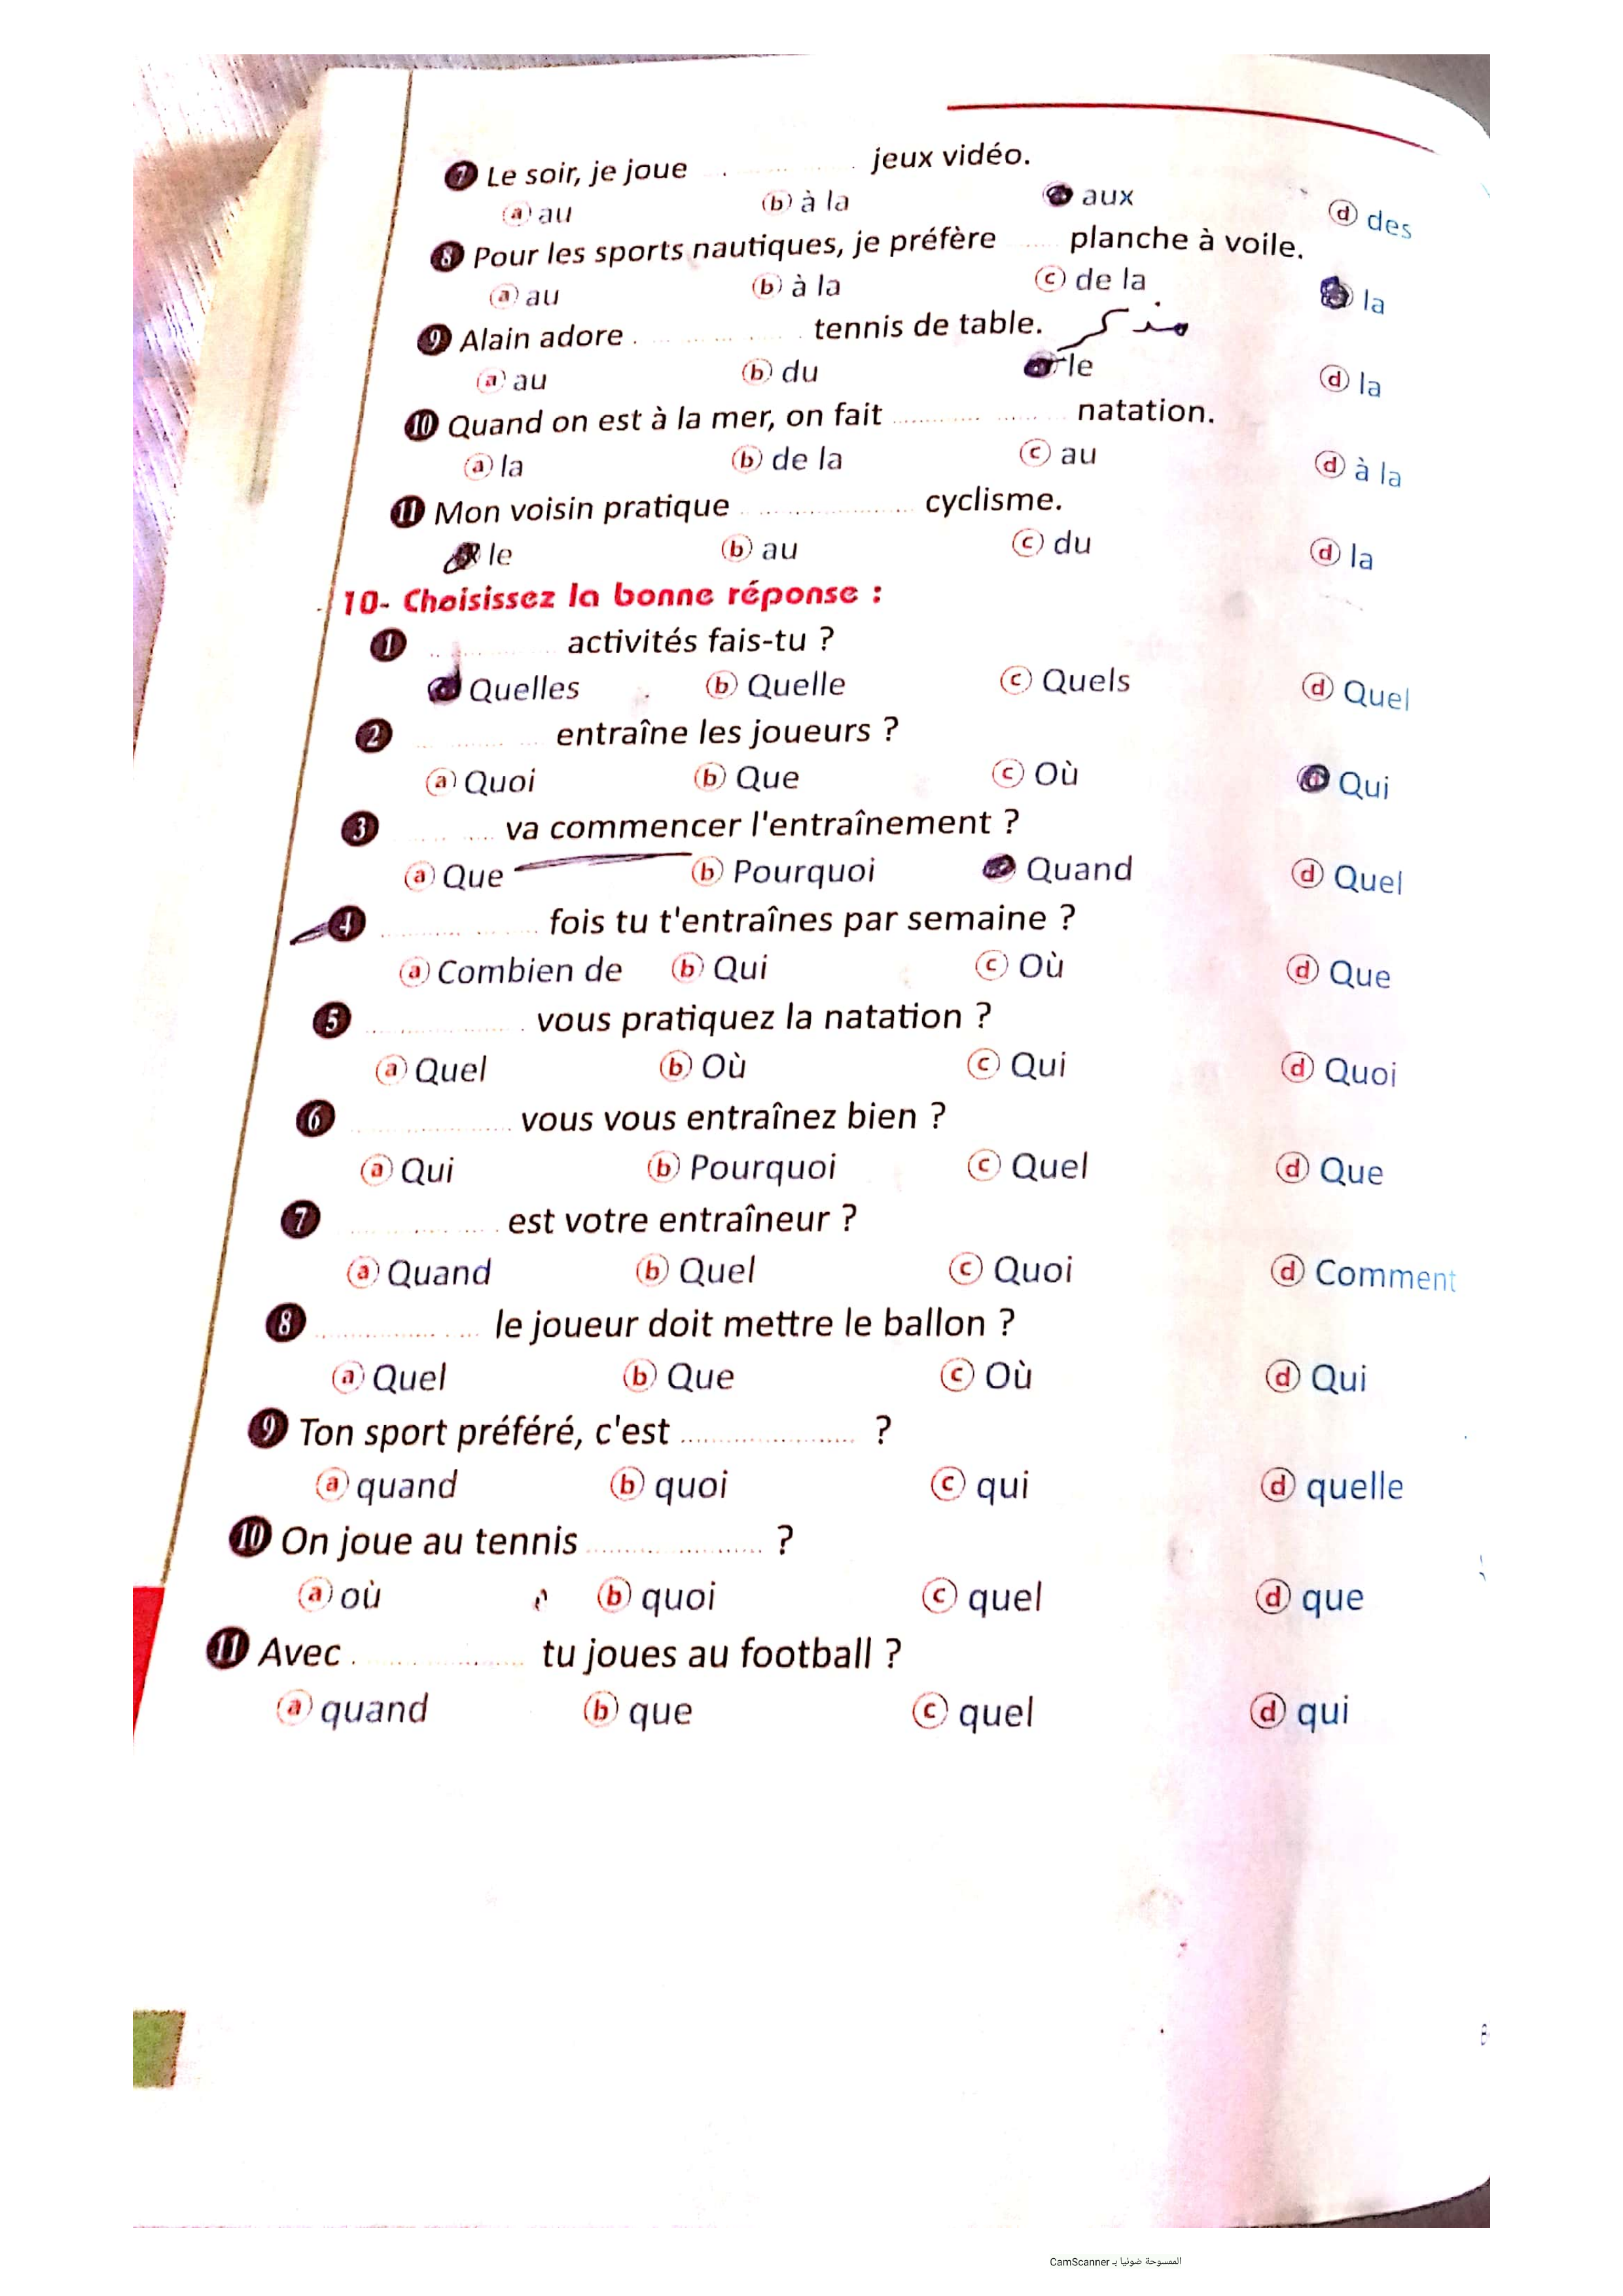 7 Le soir, je joue ............ jeux vidéo.
a au b à la aux d des
8 Pour les sports nautiques, je préfère ...... planche à voile.
a au b à la c de la la
9 Alain adore ............ tennis de table. مذكر
a au b du le d la
10 Quand on est à la mer, on fait ............ natation.
a la b de la c au d à la
11 Mon voisin pratique ............ cyclisme.
le b au c du d la
10- Choisissez la bonne réponse :
1 ............ activités fais-tu ?
Quelles b Quelle c Quels d Quel
2 ............ entraîne les joueurs ?
a Quoi b Que c Où d Qui
3 ............ va commencer l'entraînement ?
a Que b Pourquoi Quand d Quel
4 ............ fois tu t'entraînes par semaine ?
a Combien de b Qui c Où d Que
5 ............ vous pratiquez la natation ?
a Quel b Où c Qui d Quoi
6 ............ vous vous entraînez bien ?
a Qui b Pourquoi c Quel d Que
7 ............ est votre entraîneur ?
a Quand b Quel c Quoi d Comment
8 ............ le joueur doit mettre le ballon ?
a Quel b Que c Où d Qui
9 Ton sport préféré, c'est ............ ?
a quand b quoi c qui d quelle
10 On joue au tennis ............ ?
a où b quoi c quel d que
11 Avec ............ tu joues au football ?
a quand b que c quel d qui
الممسوحة ضوئيا بـ CamScanner